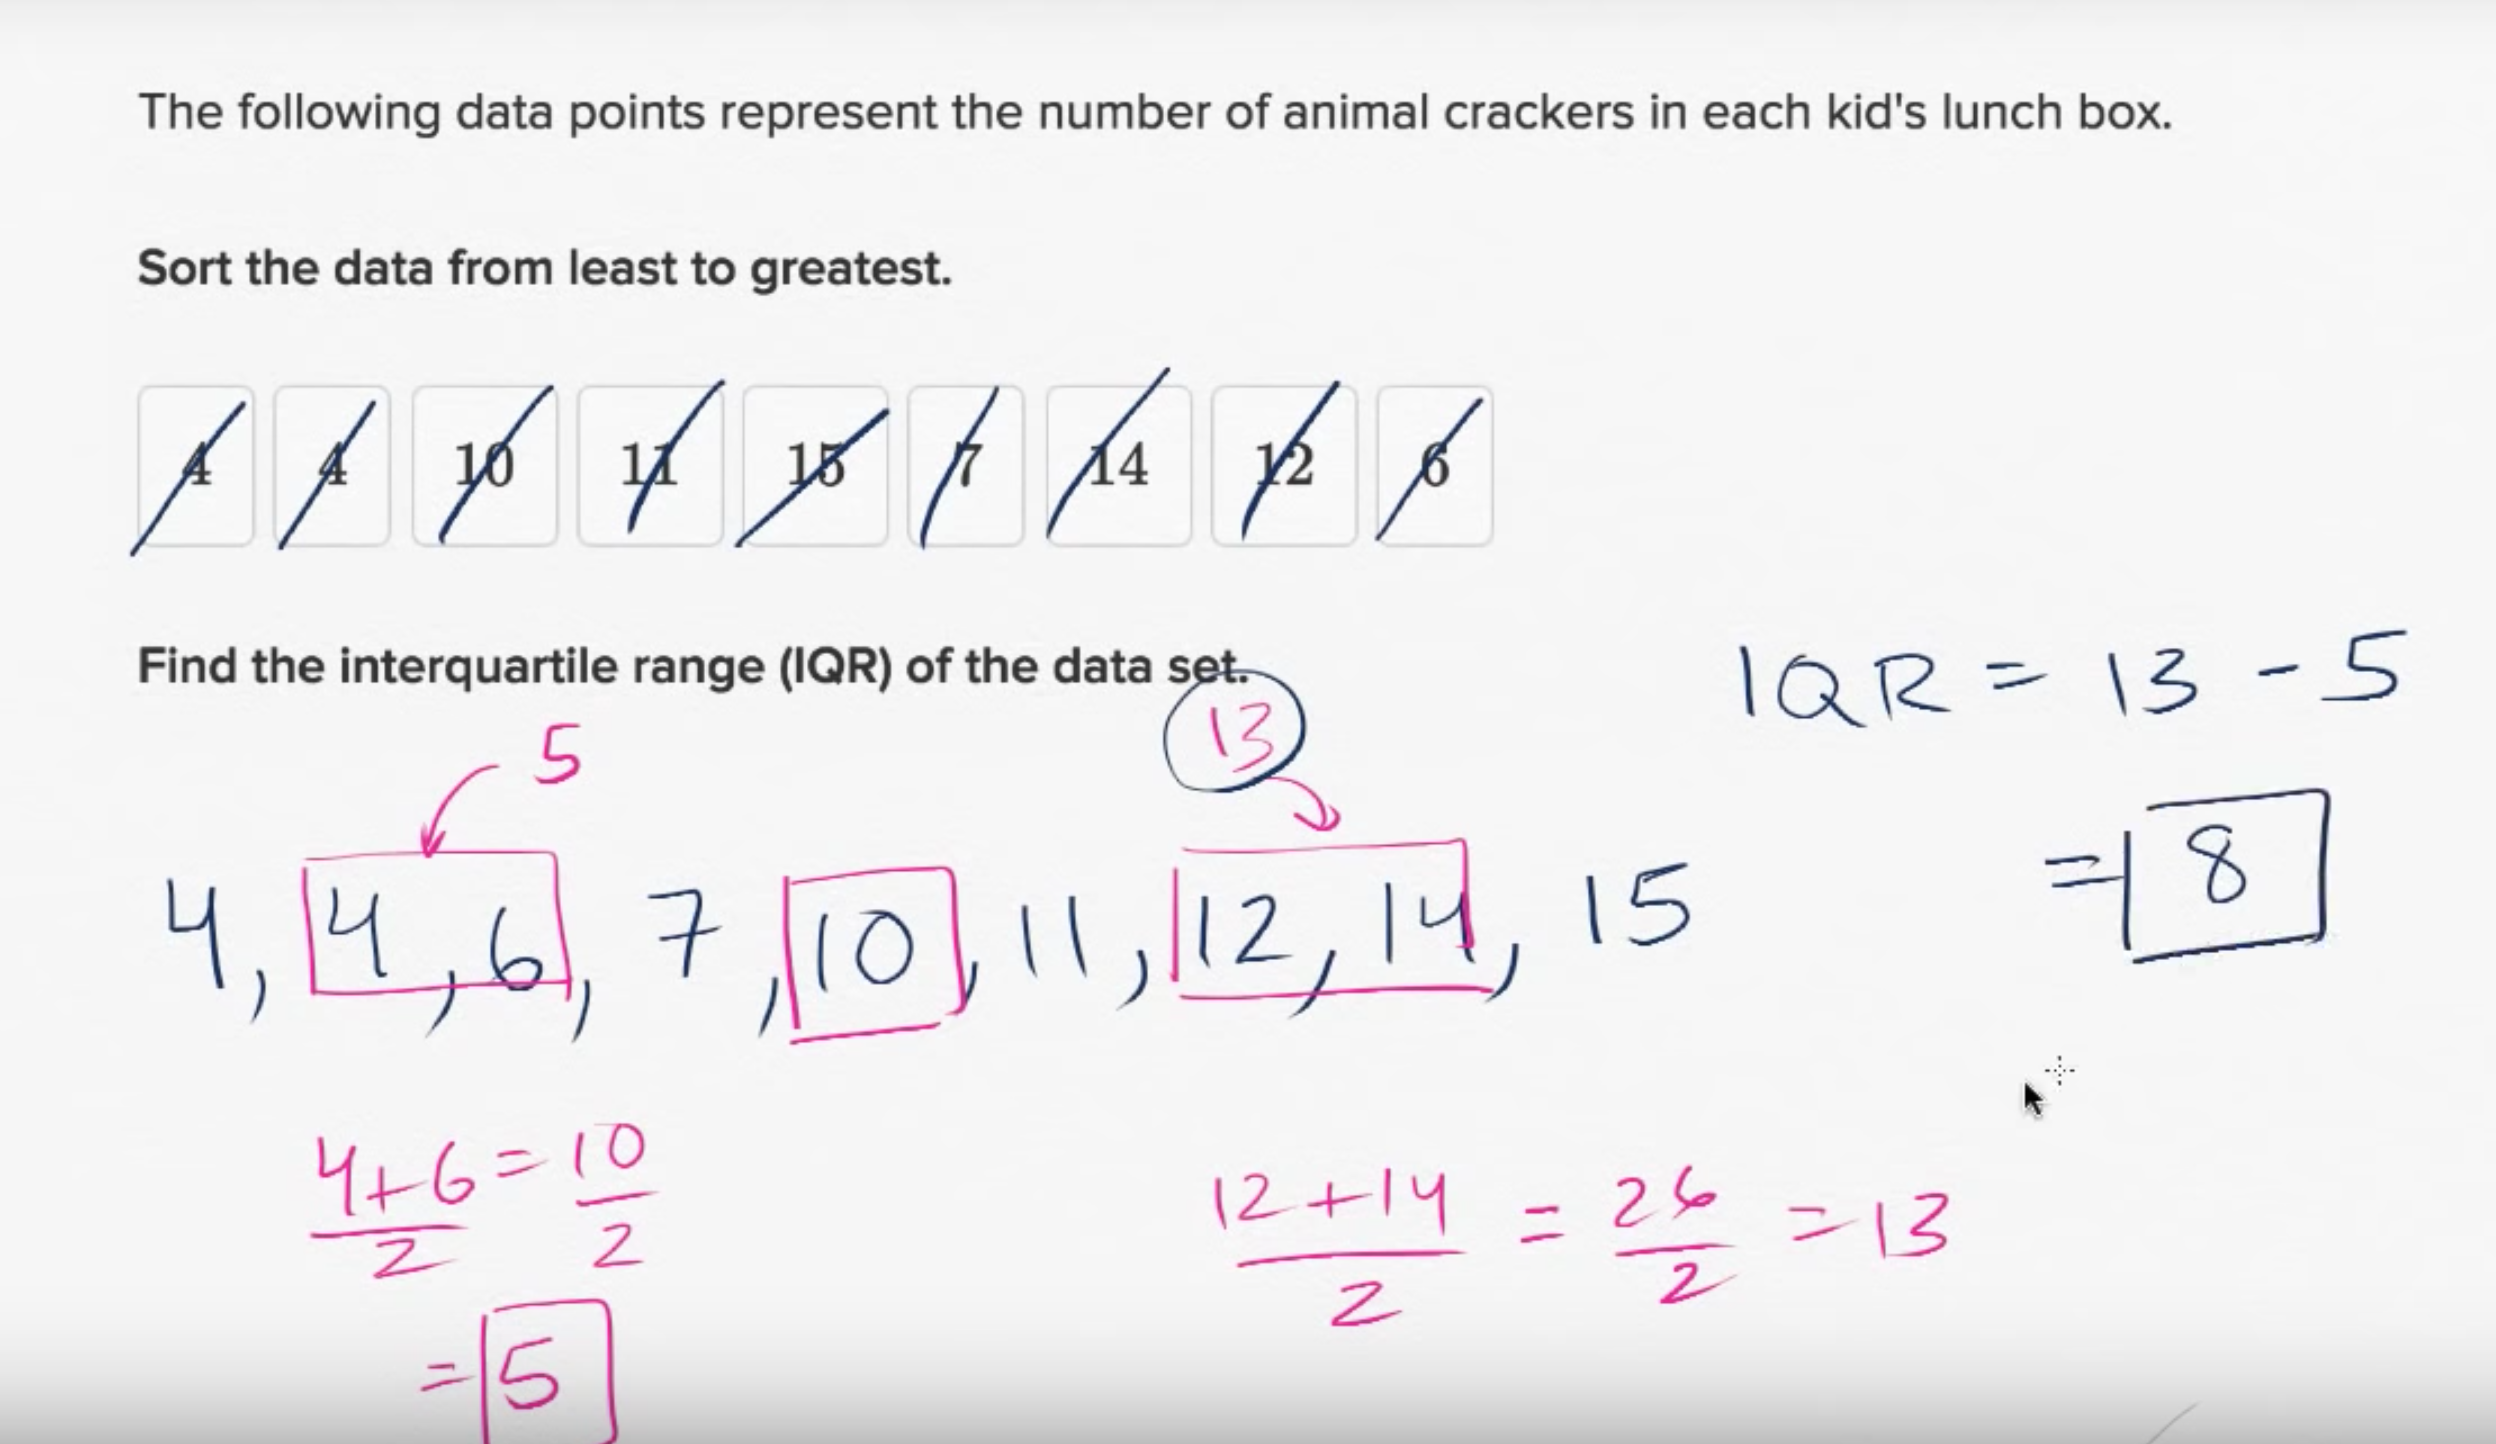 The following data points represent the number of animal crackers in each kid's lunch box.
Sort the data from least to greatest.
4 4 10 11 15 7 14 12 6
Find the interquartile range (IQR) of the data set.
IQR = 13 - 5
5
13
= 8
4, 4, 6, 7, 10, 11, 12, 14, 15
4+6 = 10
2 2
= 5
12+14 = 26 = 13
2 2